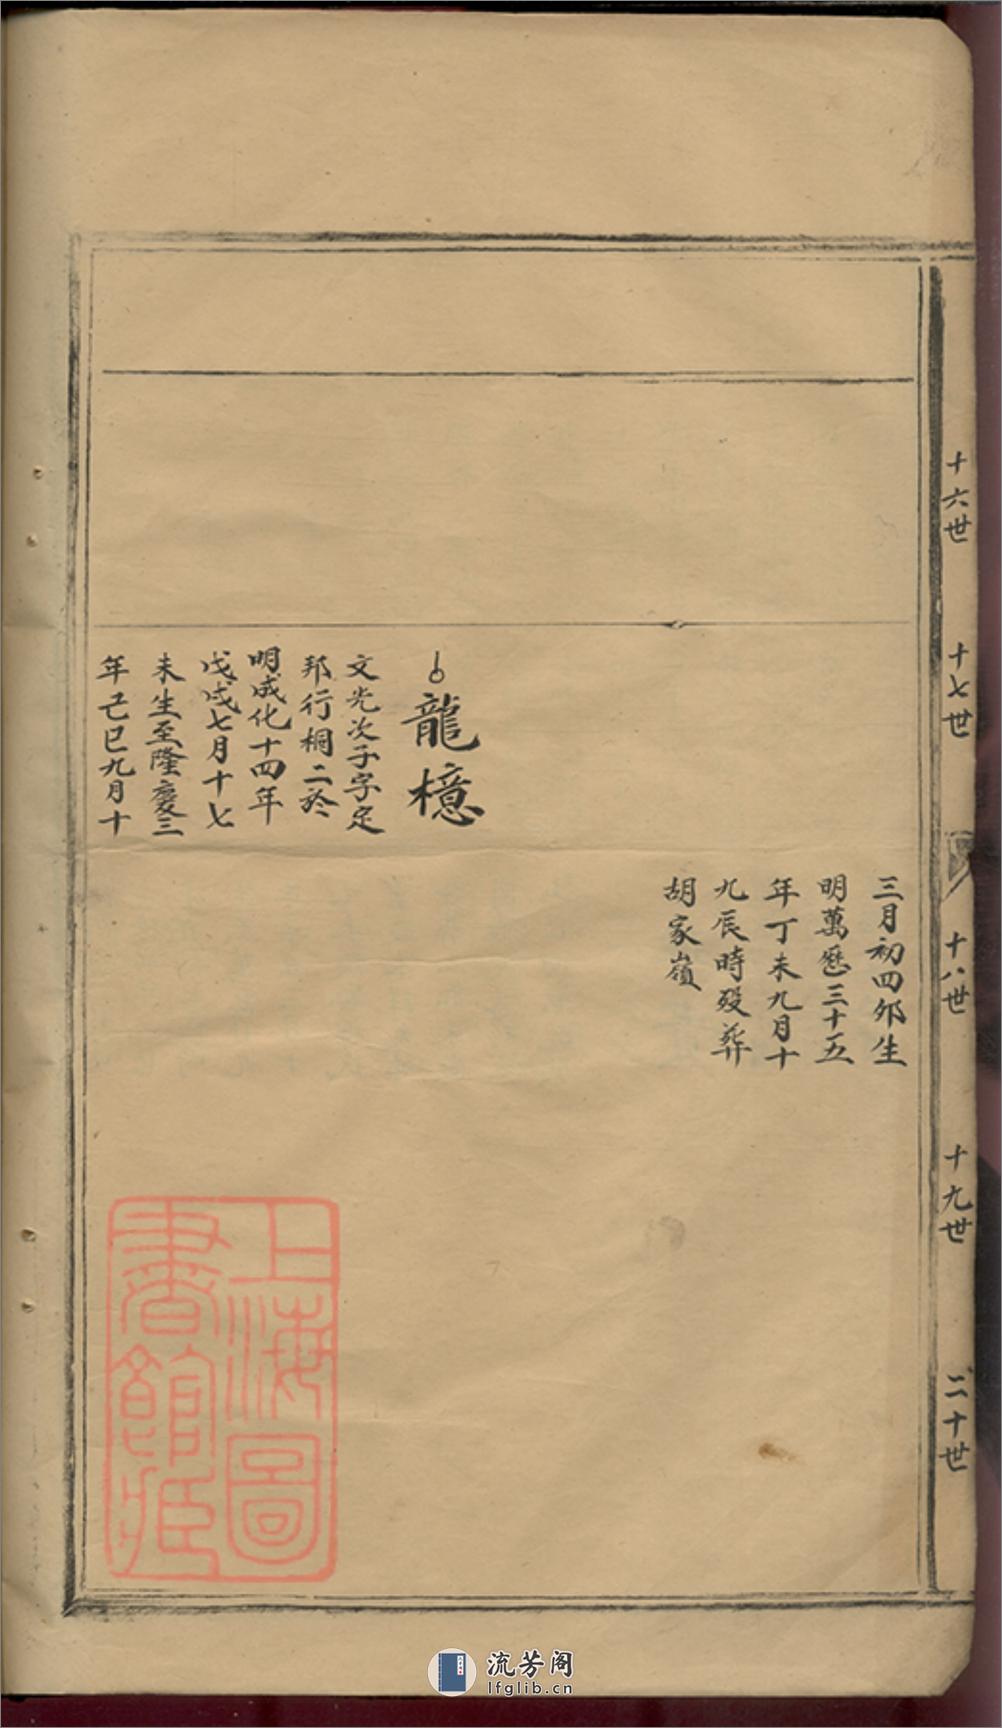 十六世
十七世
十八世
十九世
二十世
三月初四卯生
明萬厯三十五
年丁未九月十
九辰時歿葬
胡家嶺
龍檍
文光次子字定
邦行桐二於
明成化十四年
戊戌七月十七
未生至隆慶三
年己巳九月十
上海圖
書館藏
流芳阁
lfglib.cn